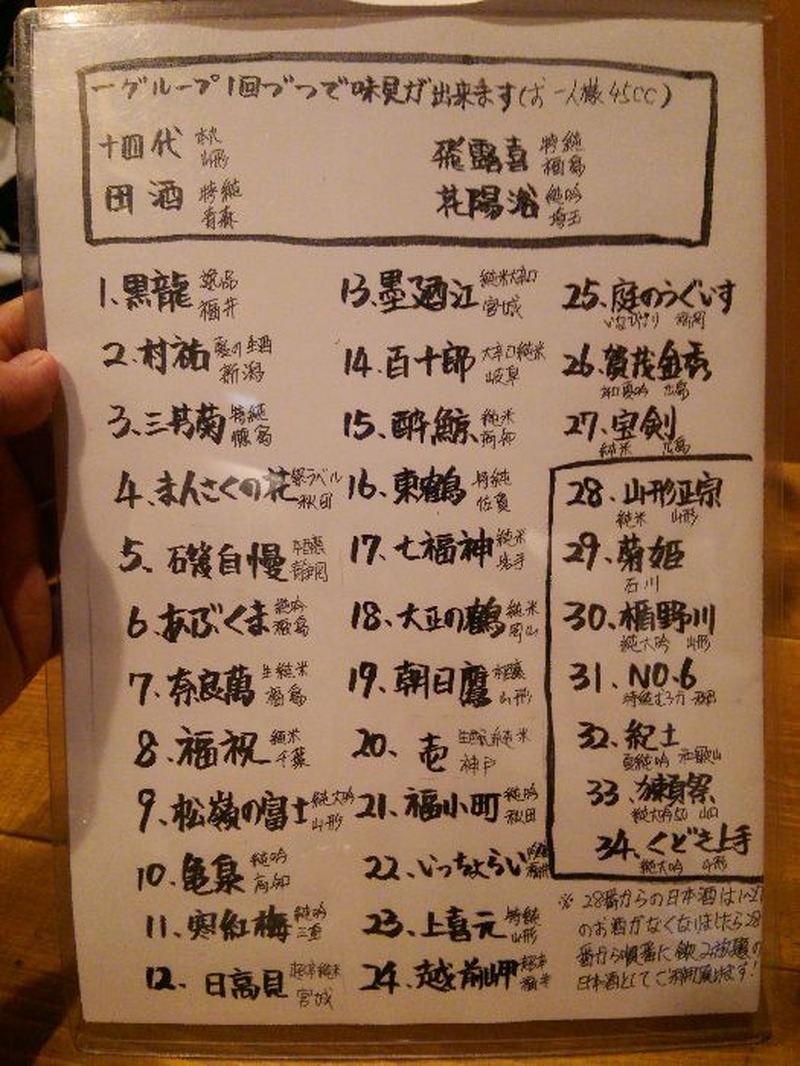 一グループ1回づつで味見が出来ます(お一人様45CC)
十四代 本丸 山形
飛露喜 特純 福島
田酒 特純 青森
花陽浴 純吟 埼玉
1、黒龍 逸品 福井
2、村祐 夏の生酒 新潟
3、三芳菊 特純 徳島
4、まんさくの花 銀ラベル 秋田
5、磯自慢 本醸 静岡
6、あぶくま 純吟 福島
7、奈良萬 生純米 福島
8、福祝 純米 千葉
9、松嶺の富士 純大吟 山形
10、亀泉 純吟 高知
11、寒紅梅 純吟 三重
12、日高見 超辛純米 宮城
13、墨廼江 純米大辛口 宮城
14、百十郎 大辛口純米 岐阜
15、酔鯨 純米 高知
16、東鶴 特純 佐賀
17、七福神 純米 岩手
18、大正の鶴 純米 岡山
19、朝日鷹 山形
20、壱 生酛純米 神戸
21、福小町 純吟 秋田
22、いっちょらい 福井
23、上喜元 特純 山形
24、越前岬 福井
25、庭のうぐいす 福岡
26、賀茂金秀 辛口夏吟 広島
27、宝剣 純米 広島
28、山形正宗 純米 山形
29、菊姫 石川
30、楯野川 純大吟 山形
31、NO.6 特純むろか 秋田
32、紀土 夏純吟 和歌山
33、獺祭 純大吟50 山口
34、くどき上手 純大吟 山形
※28番からの日本酒は1~27
のお酒がなくなりましたら28
番から順番に飲み放題の
日本酒としてご利用頂けます!